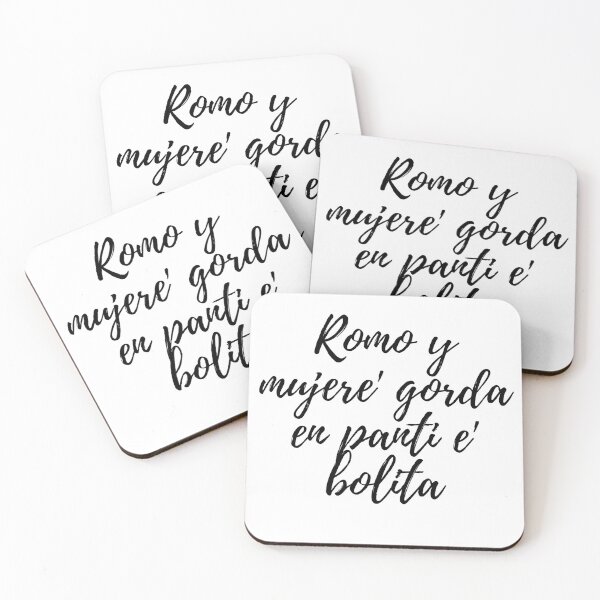 Romo y
mujere' gorda
ti e'
Romo y
mujere' gorda
en panti e'
bolita
Romo y
mujere' gorda
en panti e'
bolita
Romo y
mujere' gorda
en panti e'
bolita